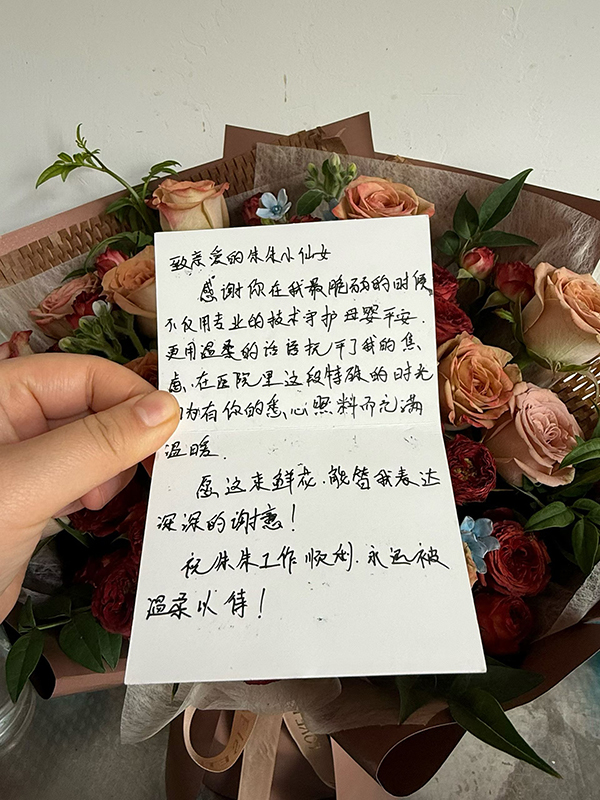 致亲爱的朱朱小仙女
感谢你在我最脆弱的时候
不仅用专业的技术守护母婴平安.
更用温柔的话语抚平了我的焦
虑、在医院里这段特殊的时光
因为有你的悉心照料而充满
温暖.
愿这束鲜花.能替我表达
深深的谢意!
祝朱朱工作顺利.永远被
温柔以待!